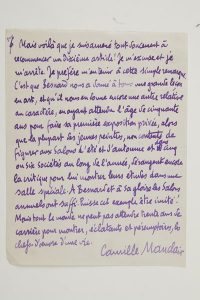 Mais voilà que je suis amené tout doucement à
recommencer un deuxième article ! Je m'excuse et je
m'arrête. Je préfère m'en tenir à cette simple remarque
C'est que Besnard nous a donné à tous une grande leçon
en art, et qu'il nous en donne encore une autre, relative
au caractère, en ayant attendu l'âge de cinquante
ans pour faire sa première exposition privée, alors
que la plupart des jeunes peintres, non contents de
figurer aux Salons d'été et d'automne et dans cinq
ou six sociétés au long de l'année, dérangent encore
la critique pour lui montrer leurs études dans une
salle spéciale. A Besnard et à sa gloire les Salons
annuels ont suffi. Puisse cet exemple être imité !
Mais tout le monde ne peut pas attendre trente ans de
carrière pour montrer, éclatants et péremptoires, les
chefs-d'œuvre d'une vie.
Camille Mauclair